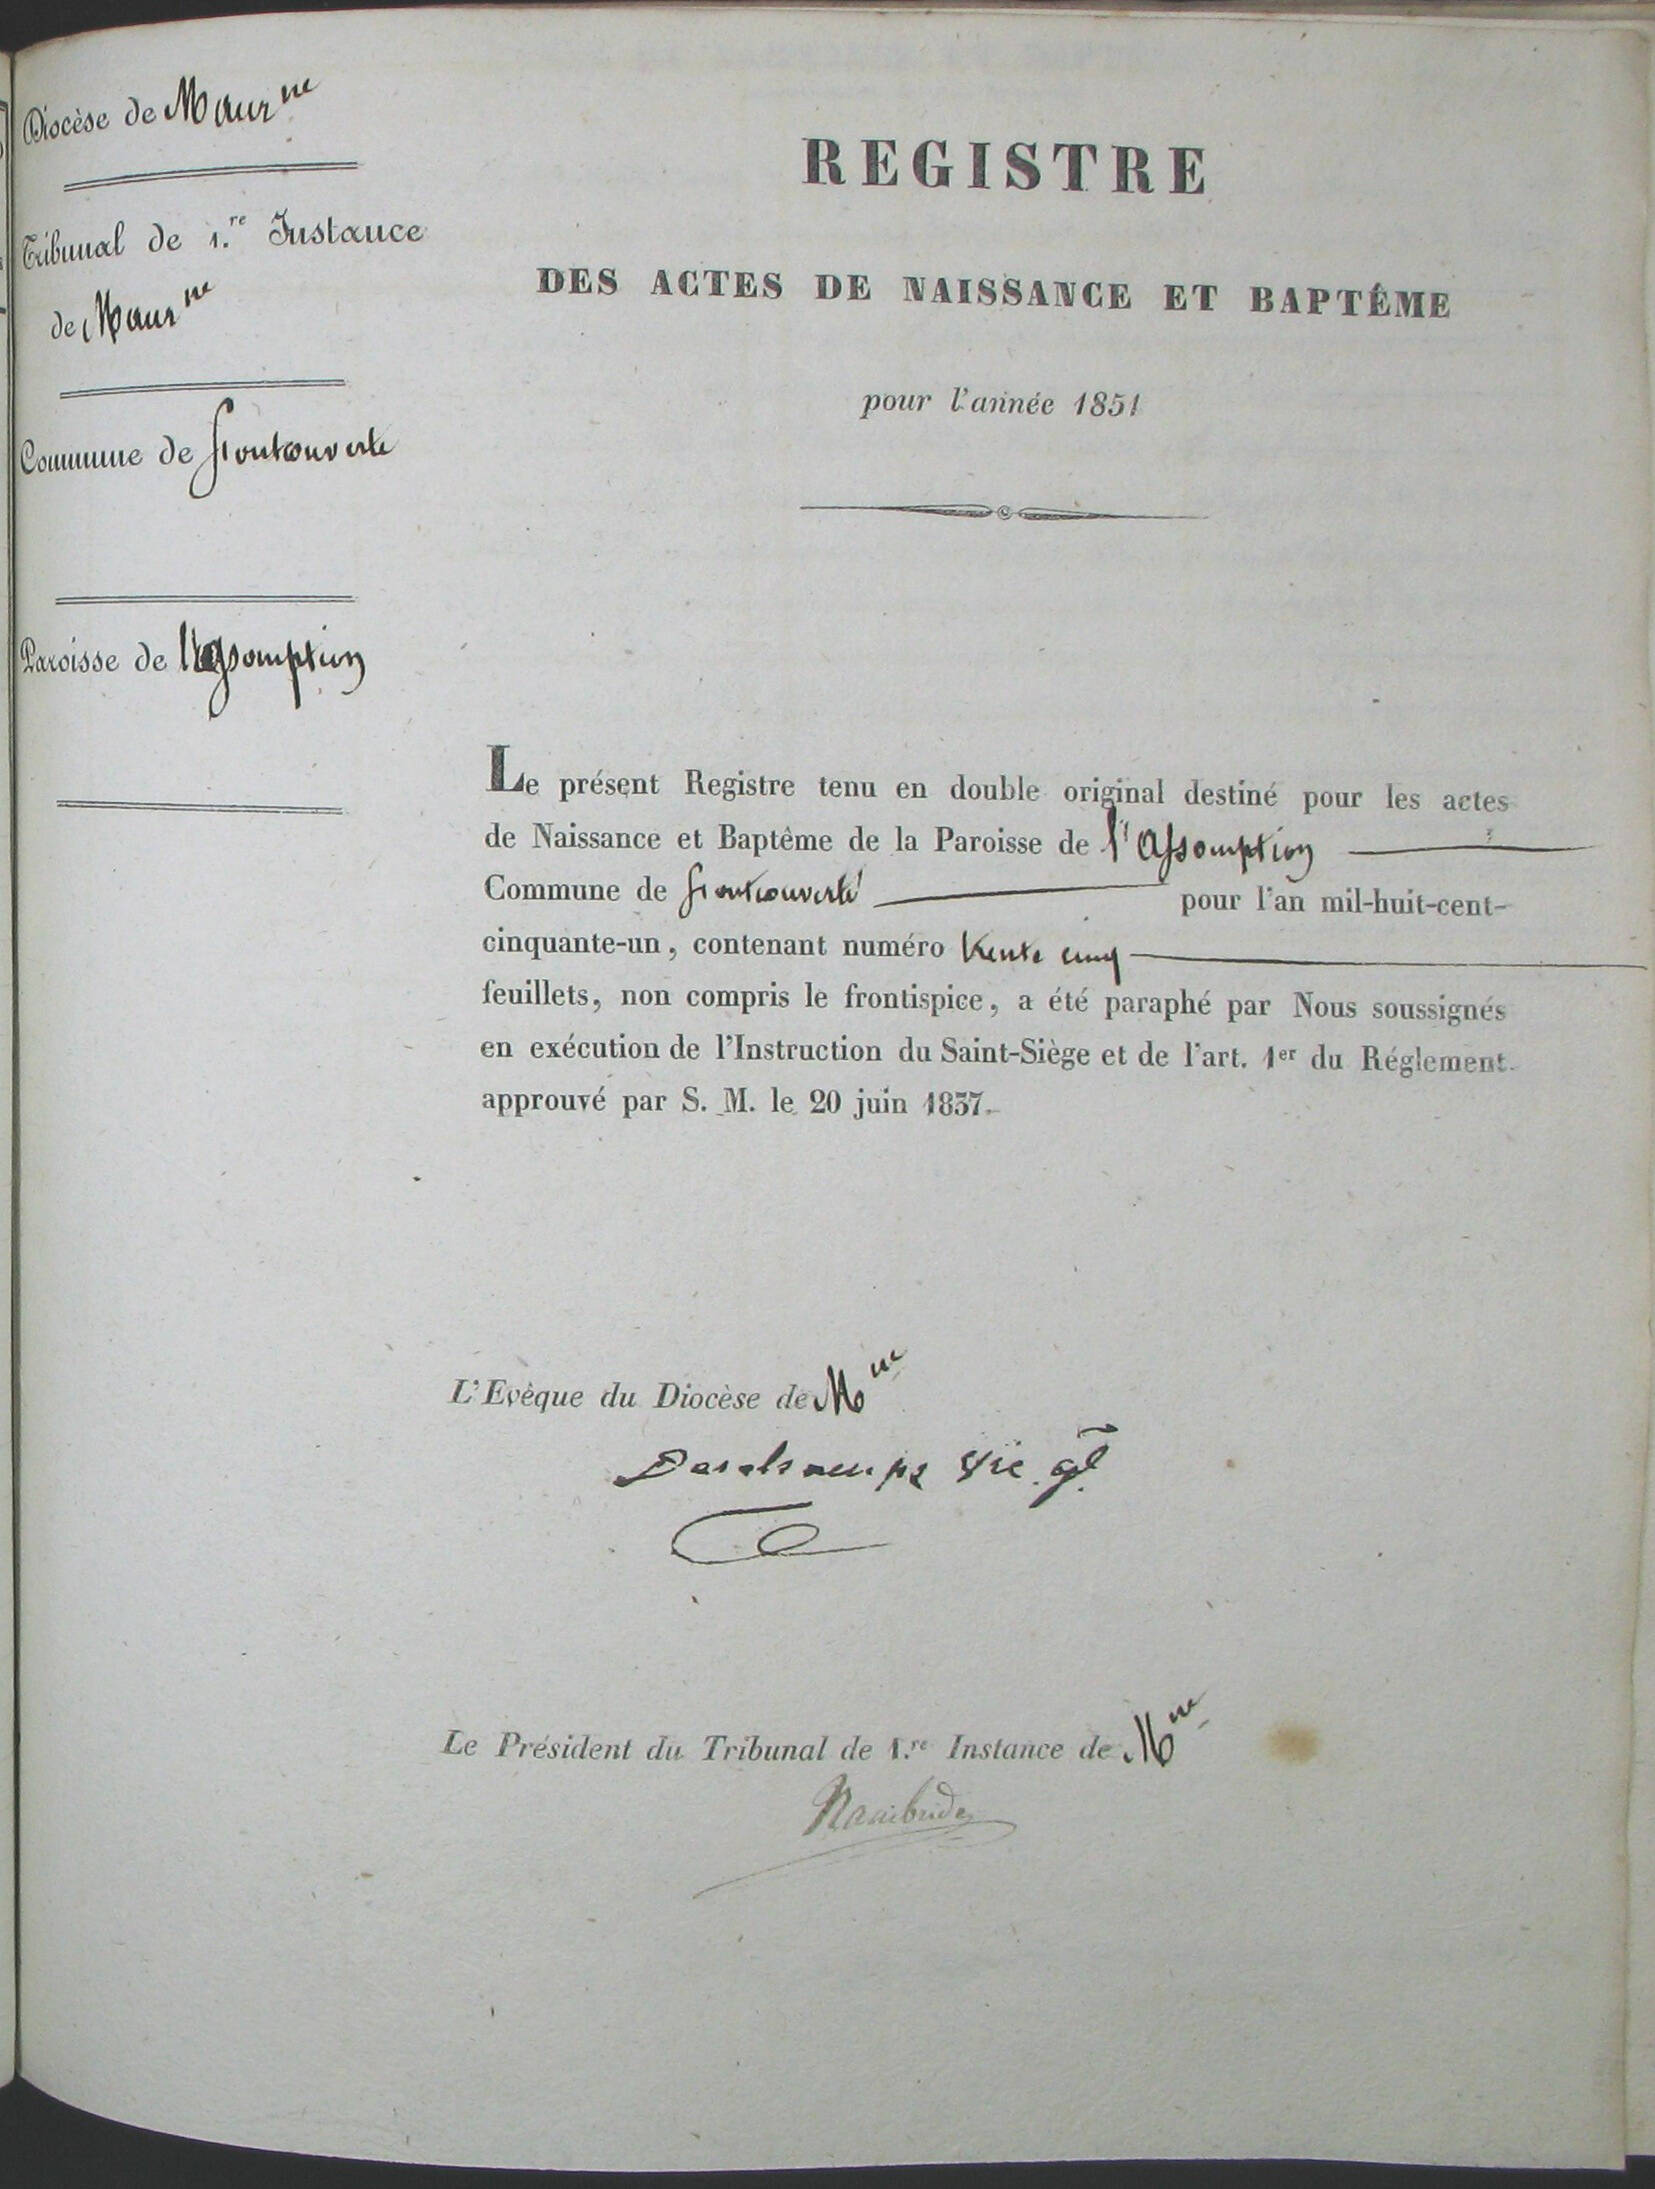 Diocèse de Maur.ne
Tribunal de 1.re Instance
de Maur.ne
Commune de fontcouverte
Paroisse de l'assomption
REGISTRE
DES ACTES DE NAISSANCE ET BAPTÊME
pour l'année 1851
Le présent Registre tenu en double original destiné pour les actes
de Naissance et Baptême de la Paroisse de l'assomption
Commune de fontcouverte pour l'an mil-huit-cent-
cinquante-un, contenant numéro trente cinq
feuillets, non compris le frontispice, a été paraphé par Nous soussignés
en exécution de l'Instruction du Saint-Siège et de l'art. 1er du Réglement
approuvé par S. M. le 20 juin 1837.
L'Evèque du Diocèse de M.ne
Deschamps vic. gl.
Le Président du Tribunal de 1.re Instance de M.ne